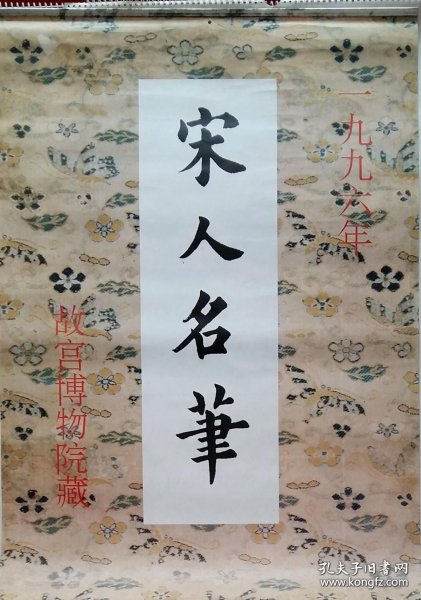 一九九六年
宋人名筆
故宫博物院藏
孔夫子旧书网
www.kongfz.com